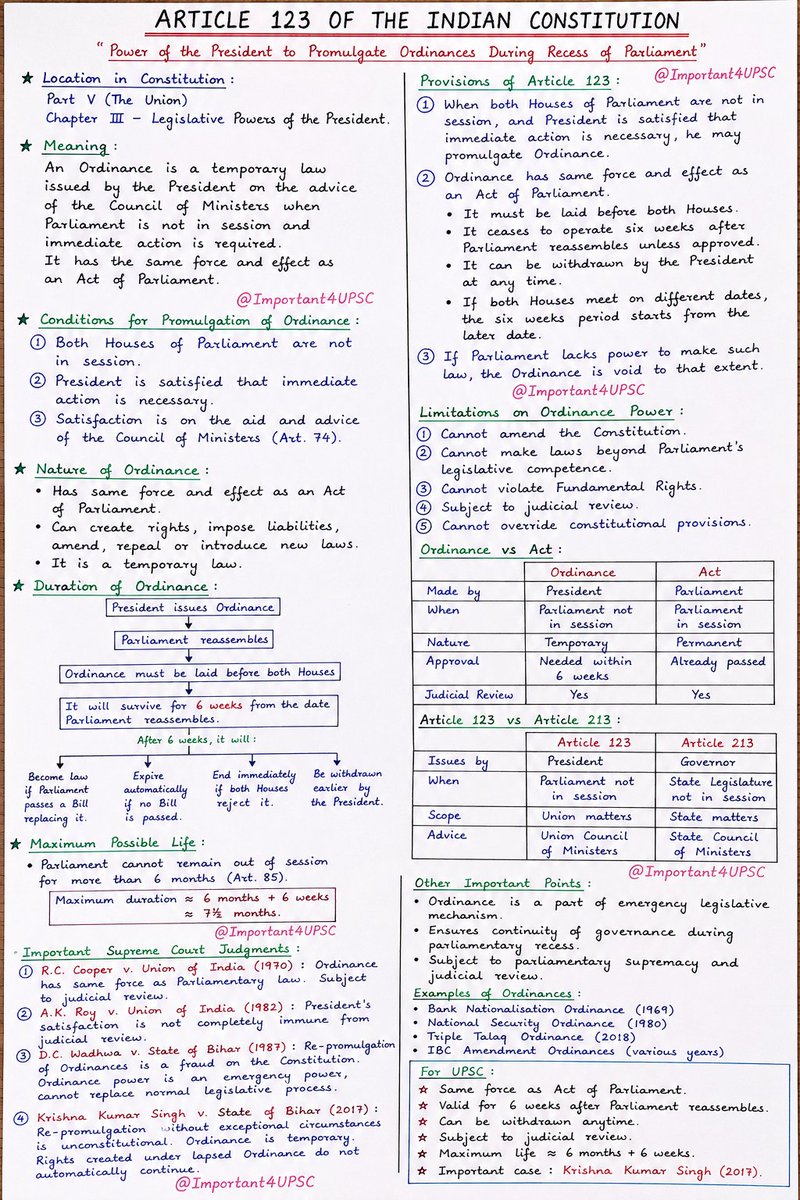 ARTICLE 123 OF THE INDIAN CONSTITUTION
"Power of the President to Promulgate Ordinances During Recess of Parliament"
★ Location in Constitution :
Part V (The Union)
Chapter III – Legislative Powers of the President.
★ Meaning :
An Ordinance is a temporary law
issued by the President on the advice
of the Council of Ministers when
Parliament is not in session and
immediate action is required.
It has the same force and effect as
an Act of Parliament.
@Important4UPSC
★ Conditions for Promulgation of Ordinance :
① Both Houses of Parliament are not
in session.
② President is satisfied that immediate
action is necessary.
③ Satisfaction is on the aid and advice
of the Council of Ministers (Art. 74).
★ Nature of Ordinance :
• Has same force and effect as an Act
of Parliament.
• Can create rights, impose liabilities,
amend, repeal or introduce new laws.
• It is a temporary law.
★ Duration of Ordinance :
President issues Ordinance
Parliament reassembles
Ordinance must be laid before both Houses
It will survive for 6 weeks from the date
Parliament reassembles.
After 6 weeks, it will :
Become law
if Parliament
passes a Bill
replacing it.
Expire
automatically
if no Bill
is passed.
End immediately
if both Houses
reject it.
Be withdrawn
earlier by
the President.
★ Maximum Possible Life :
• Parliament cannot remain out of session
for more than 6 months (Art. 85).
Maximum duration ≈ 6 months + 6 weeks
≈ 7½ months.
@Important4UPSC
Important Supreme Court Judgments :
① R.C. Cooper v. Union of India (1970) : Ordinance
has same force as Parliamentary law. Subject
to judicial review.
② A.K. Roy v. Union of India (1982) : President's
satisfaction is not completely immune from
judicial review.
③ D.C. Wadhwa v. State of Bihar (1987) : Re-promulgation
of Ordinances is a fraud on the Constitution.
Ordinance power is an emergency power,
cannot replace normal legislative process.
④ Krishna Kumar Singh v. State of Bihar (2017) :
Re-promulgation without exceptional circumstances
is unconstitutional. Ordinance is temporary.
Rights created under lapsed Ordinance do not
automatically continue.
@Important4UPSC
Provisions of Article 123 :
@Important4UPSC
① When both Houses of Parliament are not in
session, and President is satisfied that
immediate action is necessary, he may
promulgate Ordinance.
② Ordinance has same force and effect as
an Act of Parliament.
• It must be laid before both Houses.
• It ceases to operate six weeks after
Parliament reassembles unless approved.
• It can be withdrawn by the President
at any time.
• If both Houses meet on different dates,
the six weeks period starts from the
later date.
③ If Parliament lacks power to make such
law, the Ordinance is void to that extent.
@Important4UPSC
Limitations on Ordinance Power :
① Cannot amend the Constitution.
② Cannot make laws beyond Parliament's
legislative competence.
③ Cannot violate Fundamental Rights.
④ Subject to judicial review.
⑤ Cannot override constitutional provisions.
Ordinance vs Act :
Ordinance Act
Made by President Parliament
When Parliament not Parliament
in session in session
Nature Temporary Permanent
Approval Needed within Already passed
6 weeks
Judicial Review Yes Yes
Article 123 vs Article 213 :
Article 123 Article 213
Issues by President Governor
When Parliament not State Legislature
in session not in session
Scope Union matters State matters
Advice Union Council State Council
of Ministers of Ministers
@Important4UPSC
Other Important Points :
• Ordinance is a part of emergency legislative
mechanism.
• Ensures continuity of governance during
parliamentary recess.
• Subject to parliamentary supremacy and
judicial review.
Examples of Ordinances :
• Bank Nationalisation Ordinance (1969)
• National Security Ordinance (1980)
• Triple Talaq Ordinance (2018)
• IBC Amendment Ordinances (various years)
For UPSC :
☆ Same force as Act of Parliament.
☆ Valid for 6 weeks after Parliament reassembles.
☆ Can be withdrawn anytime.
☆ Subject to judicial review.
☆ Maximum life ≈ 6 months + 6 weeks.
☆ Important case : Krishna Kumar Singh (2017).